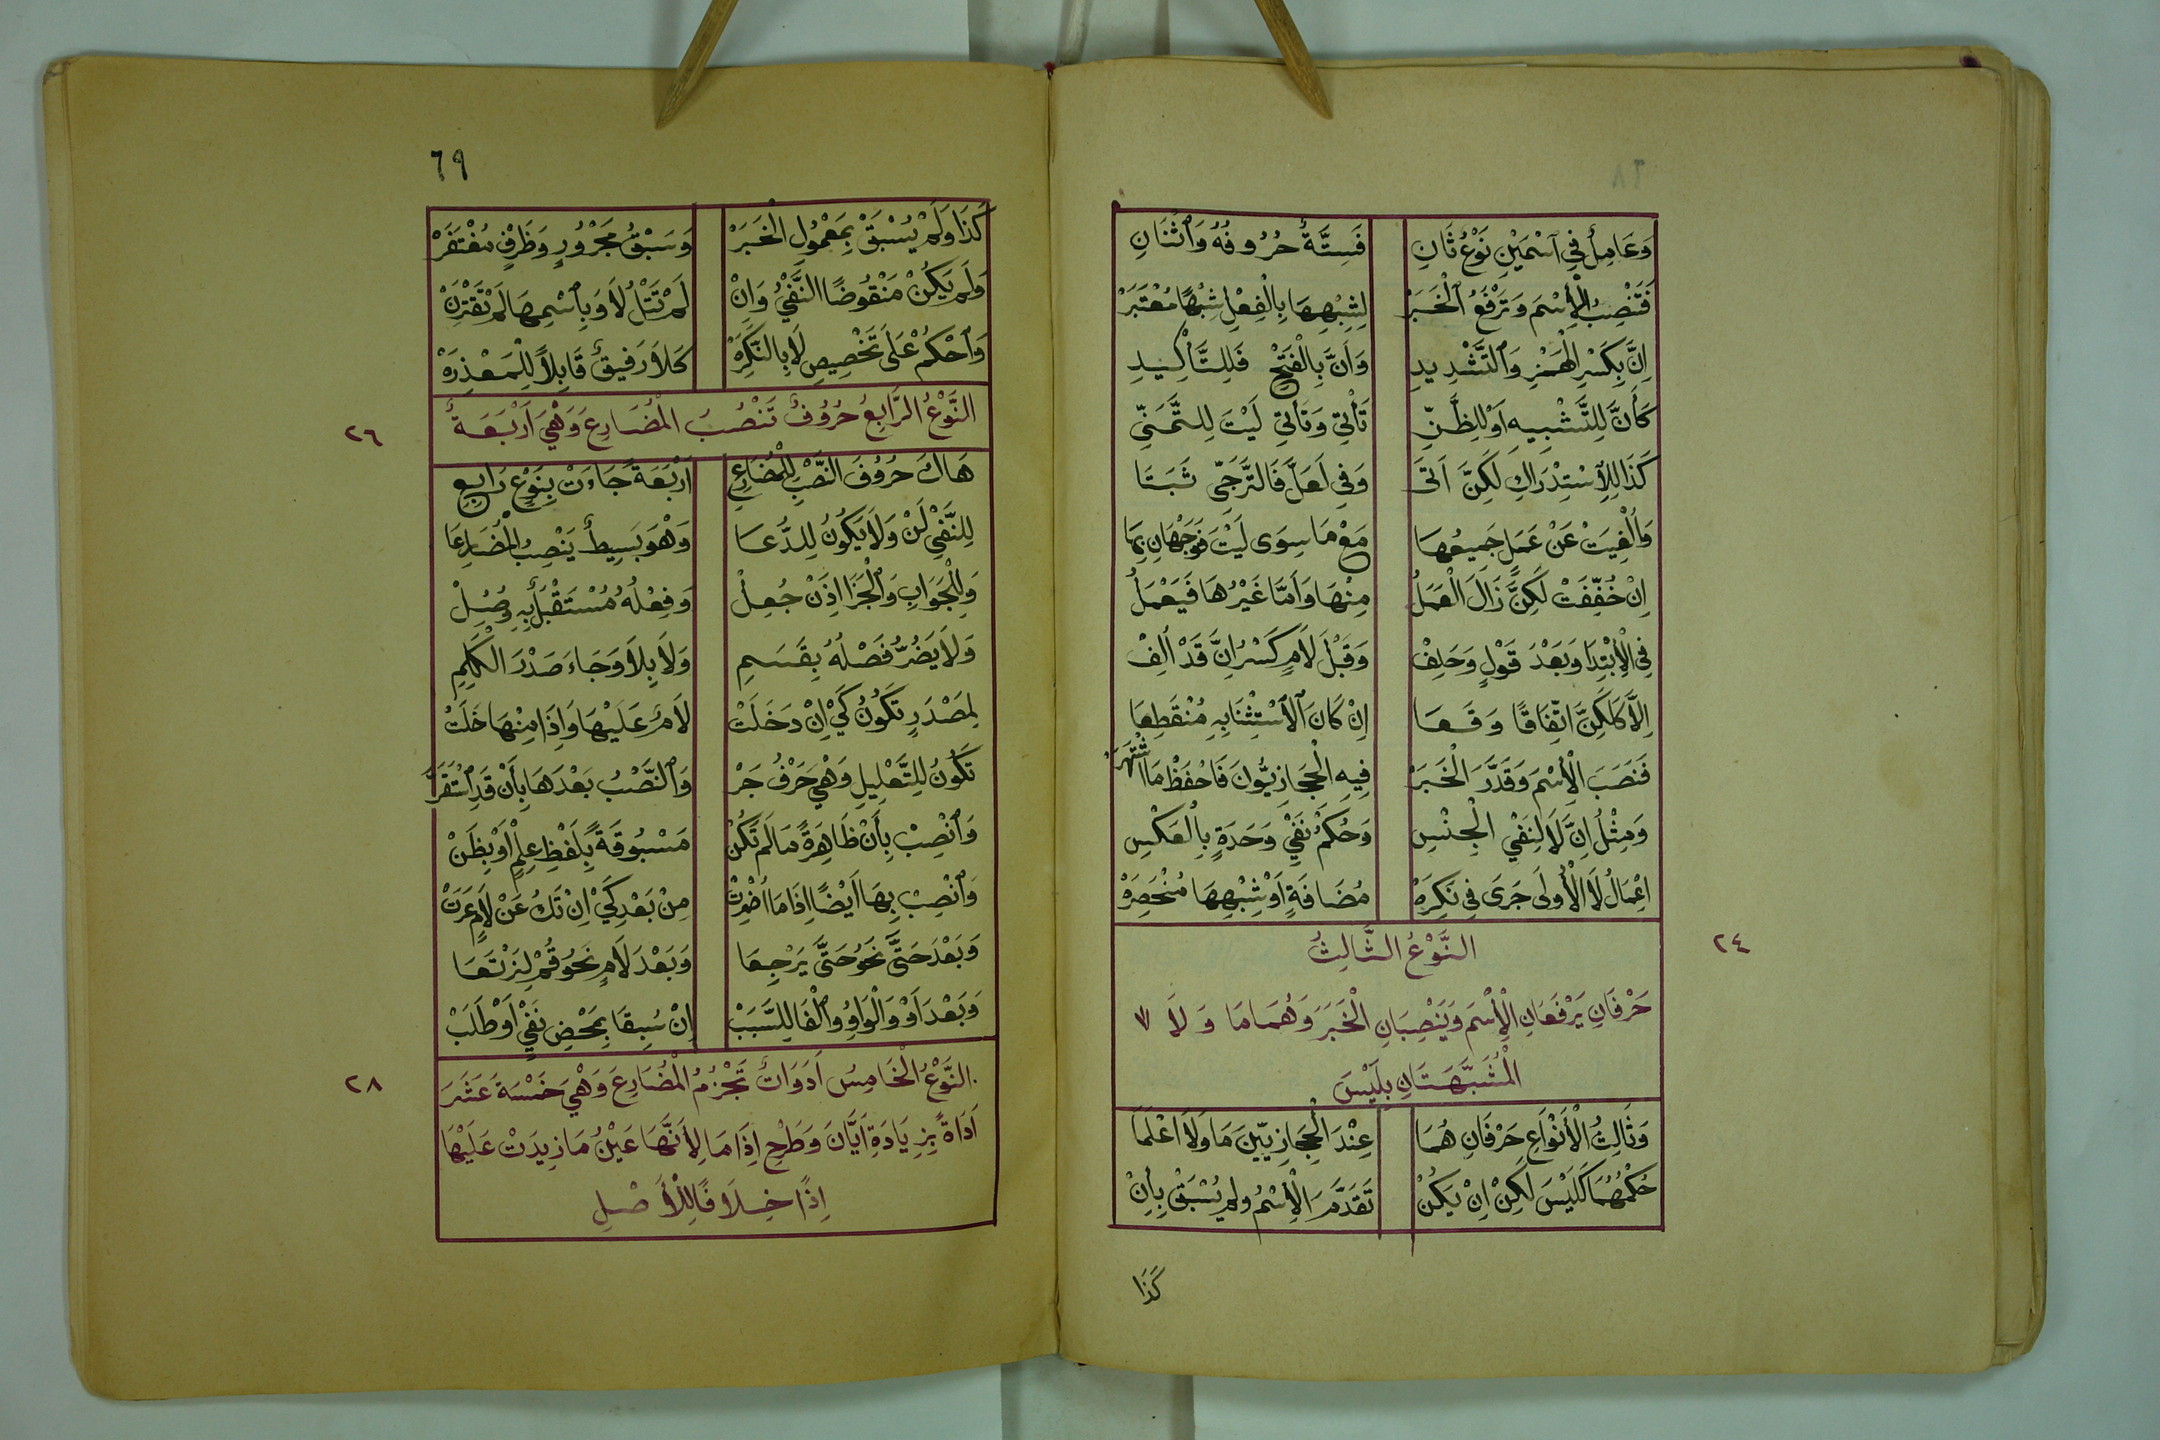 ٦٨
وَعَامِلٌ فِي ٱسْمَيْنِ نَوْعٌ ثَانِ فَسِتَّةٌ حُرُوفُهُ وَٱثْنَانِ
فَتَنْصِبُ الْاِسْمَ وَتَرْفَعُ ٱلْخَبَرْ لِشِبْهِهَا بِالْفِعْلِ شِبْهًا مُعْتَبَرْ
اِنَّ بِكَسْرِ الْهَمْزِ وَٱلتَّشْدِيدِ وَاَنَّ بِالْفَتْحِ فَلِلتَّأْكِيدِ
كَأَنَّ لِلتَّشْبِيهِ اَوْ لِلظَّنِّ تَأْتِي وَتَأْتِي لَيْتَ لِلتَّمَنِّي
كَذَا لِلِٱسْتِدْرَاكِ لَكِنَّ اَتَى وَفِي لَعَلَّ فَالتَّرَجِّي ثَبَتَا
وَاُلْغِيَتْ عَنْ عَمَلٍ جَمِيعُهَا مَعْ مَا سِوَى لَيْتَ فَوَجْهَانِ بِهَا
اِنْ خُفِّفَتْ لَكِنَّ زَالَ الْعَمَلُ مِنْهَا وَاَمَّا غَيْرُهَا فَيَعْمَلُ
فِي الْاِبْتِدَا وَبَعْدَ قَوْلٍ وَحَلِفْ وَقَبْلَ لَامٍ كَسْرُ اِنَّ قَدْ اُلِفْ
اِلَّا كَلَكِنَّ اتِّفَاقًا وَقَعَا اِنْ كَانَ ٱلْاسْتِثْنَا بِهِ مُنْقَطِعَا
فَنَصَبَ الْاِسْمَ وَقَدَّرَ الْخَبَرْ فِيهِ الْحِجَازِيُّونَ فَاحْفَظْ مَا اشْتَهَرْ
وَمِثْلُ اِنَّ لَا لِنَفْيِ الْجِنْسِ وَحُكْمُ نَفْيِ وَحَدَةٍ بِالْعَكْسِ
اِعْمَالُ لَا الْأُولَى جَرَى فِي نَكِرَهْ مُضَافَةٍ اَوْ شِبْهِهَا مُنْحَصِرَهْ
٢٤
النَّوْعُ الثَّالِثُ
حَرْفَانِ يَرْفَعَانِ الْاِسْمَ وَيَنْصِبَانِ الْخَبَرَ وَهُمَا مَا وَلَا
الْمُشَبَّهَتَانِ بِلَيْسَ
وَثَالِثُ الْأَنْوَاعِ حَرْفَانِ هُمَا عِنْدَ الْحِجَازِيِّينَ مَا وَلَا اعْلَمَا
حُكْمُهُمَا كَلَيْسَ لَكِنْ اِنْ يَكُنْ تَقَدَّمَ الْاِسْمُ وَلَمْ يُسْبَقْ بِأَنْ
كَذَا
٦٩
كَذَا وَلَمْ يُسْبَقْ بِمَعْمُولِ الْخَبَرْ وَسَبْقُ مَجْرُورٍ وَظَرْفٍ مُغْتَفَرْ
وَلَمْ يَكُنْ مَنْقُوضًا النَّفْيُ وَاِنْ لَمْ تَتْلُ لَا وَبِٱسْمِهَا لَمْ تَقْتَرِنْ
وَٱحْكُمْ عَلَى تَخْصِيصِ لَا بِالنَّكِرَهْ كَلَا رَفِيقٌ قَابِلًا لِلْمَعْذِرَهْ
٢٦
النَّوْعُ الرَّابِعُ حُرُوفٌ تَنْصُبُ الْمُضَارِعَ وَهْيَ اَرْبَعَةٌ
هَاكَ حُرُوفَ النَّصْبِ لِلْمُضَارِعِ اَرْبَعَةً جَاءَتْ بِنَوْعٍ رَابِعِ
لِلنَّفْيِ لَنْ وَلَا يَكُونُ لِلدُّعَا وَهْوَ بَسِيطٌ يَنْصِبُ الْمُضَارِعَا
وَلِلْجَوَابِ وَٱلْجَزَا اِذَنْ جُعِلْ وَفِعْلُهُ مُسْتَقْبَلٌ بِهِ وُصِلْ
وَلَا يَضُرُّ فَصْلُهُ بِقَسَمِ وَلَا بِلَا وَجَاءَ صَدْرَ الْكَلِمِ
لِمَصْدَرٍ تَكُونُ كَيْ اِنْ دَخَلَتْ لَامٌ عَلَيْهَا وَاِذَا مِنْهَا خَلَتْ
تَكُونُ لِلتَّعْلِيلِ وَهْيَ حَرْفُ جَرْ وَٱلنَّصْبُ بَعْدَهَا بِأَنْ قَدِ ٱسْتَقَرْ
وَٱنْصِبْ بِأَنْ ظَاهِرَةً مَا لَمْ تَكُنْ مَسْبُوقَةً بِلَفْظِ عِلْمٍ اَوْ بِظَنْ
وَٱنْصِبْ بِهَا اَيْضًا اِذَا مَا اُضْمِرَتْ مِنْ بَعْدِ كَيْ اِنْ تَكُ عَنْ لَامٍ عَرَتْ
وَبَعْدَ حَتَّى نَحْوُ حَتَّى يَرْجِعَا وَبَعْدَ لَامٍ نَحْوُ قُمْ لِنَرْتَعَا
وَبَعْدَ اَوْ وَالْوَاوُ وَٱلْفَا لِلسَّبَبْ اِنْ سُبِقَا بِمَحْضِ نَفْيٍ اَوْ طَلَبْ
٢٨
النَّوْعُ الْخَامِسُ اَدَوَاتٌ تَجْزِمُ الْمُضَارِعَ وَهْيَ خَمْسَةَ عَشَرَ
اَدَاةً بِزِيَادَةِ اَيَّانَ وَطَرْحِ اِذَا مَا لِأَنَّهَا عَيْنُ مَا زِيدَتْ عَلَيْهَا
اِذًا خِلَافًا لِلْأَصْلِ